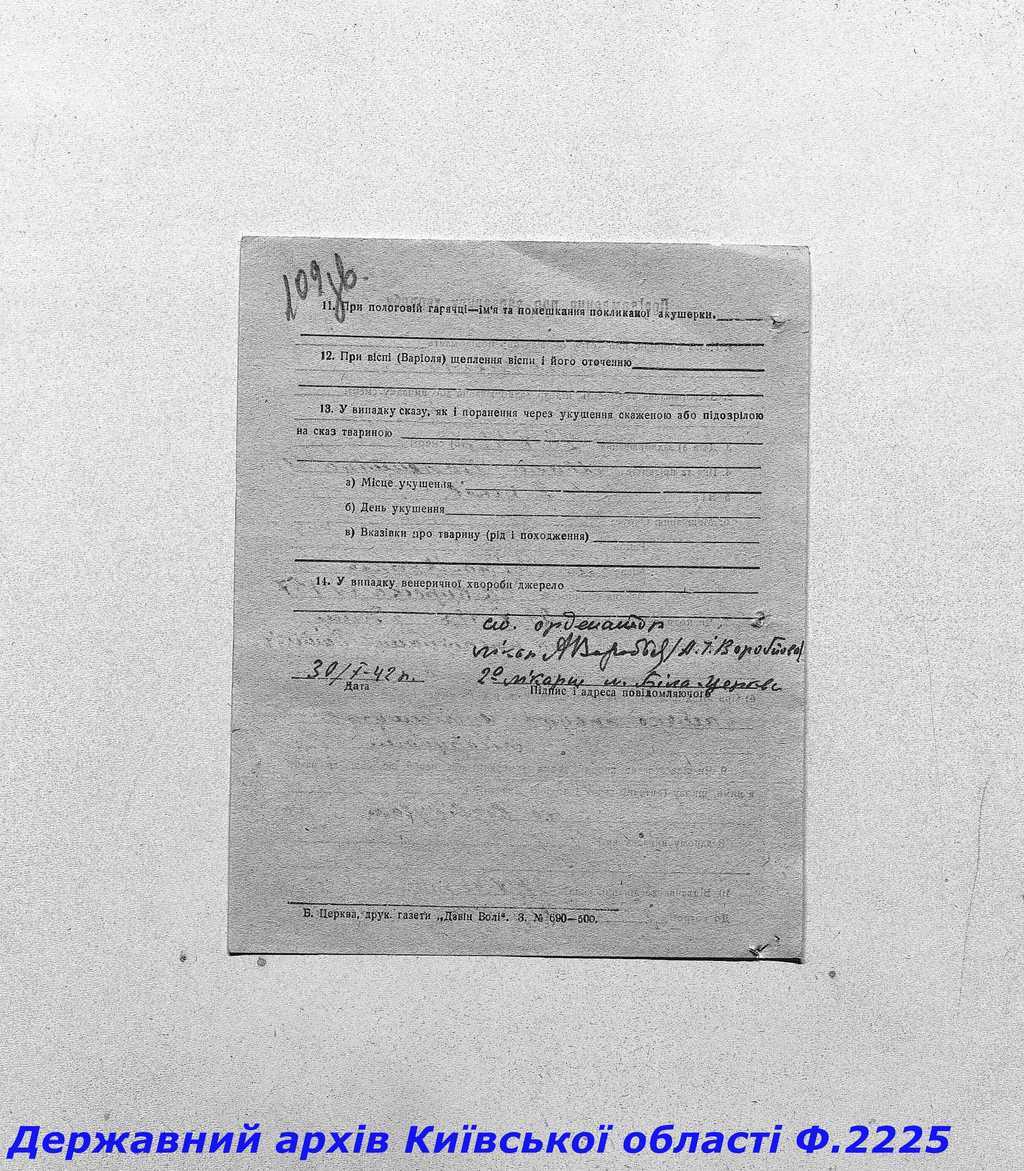 109 зв.
11. При пологовій гарячці—ім'я та помешкання покликаної акушерки.
12. При віспі (Варіоля) щеплення віспи і його оточенню
13. У випадку сказу, як і поранення через укушення скаженою або підозрілою
на сказ твариною
а) Місце укушення
б) День укушення
в) Вказівки про тварину (рід і походження)
14. У випадку венеричної хвороби джерело
ординатор
лікар (А. І. Воробйова)
30/І-42 р. 2о лікарні м. Біла-Церкви
Дата Підпис і адреса повідомляючого
Б. Церква, друк. газети „Дзвін Волі“. З. № 690—500.
Державний архів Київської області Ф.2225